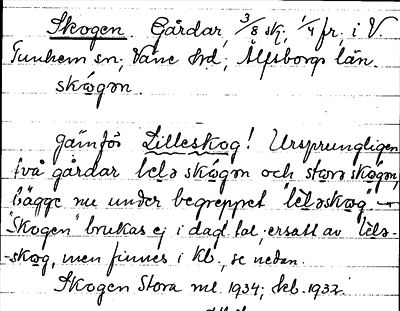 Skogen. Gårdar, 3/8 sk, 1/4 fr, i V.
Tunhem sn; Väne hd; Älfsborgs län.
skógən.
Jämför Lilleskog! Ursprungligen
två gårdar lelə skógən och storə skógən,
bägge nu under begreppet "leləskog".
"Skogen" brukas ej i dagl. tal, ersatt av "lelə-
-skog, men finnes i kb., se nedan.
Skogen Stora ml. 1934; kb. 1932.